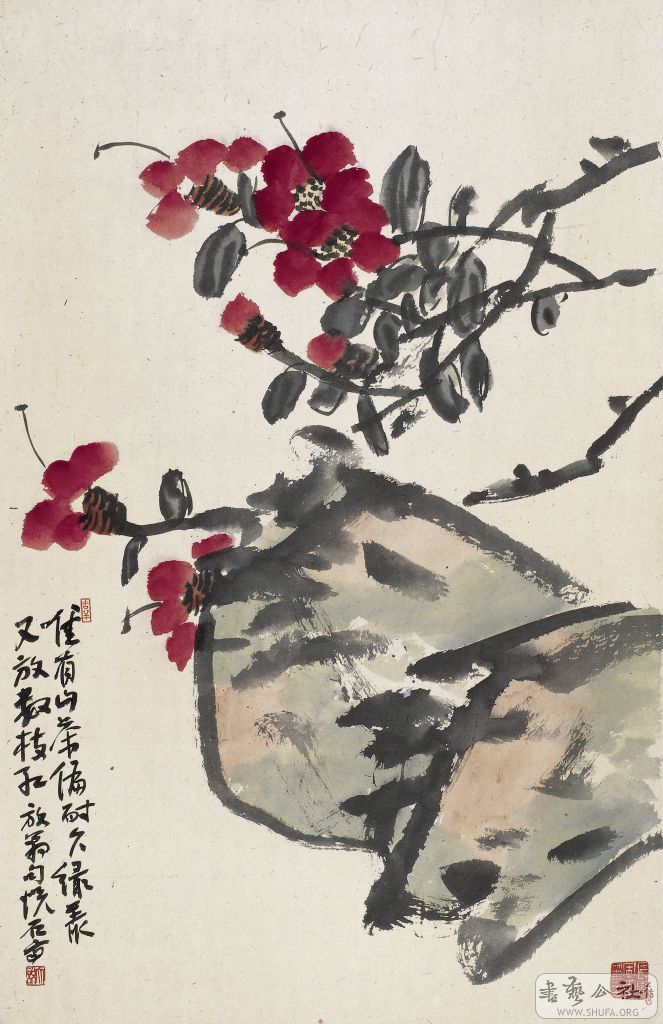 惟有山茶偏耐久绿丛
又放数枝红 放翁句
書藝公社
WWW.SHUFA.ORG